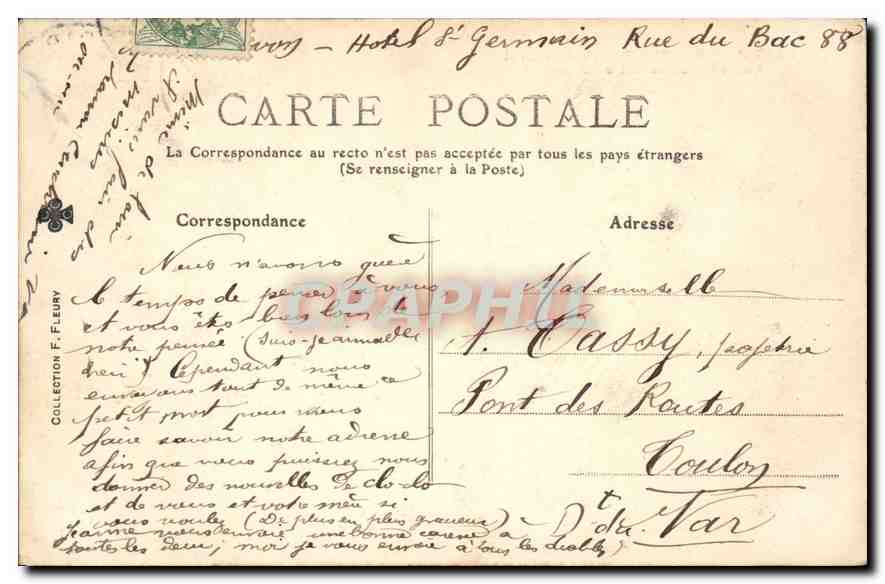 Hotel St Germain Rue du Bac 88
CARTE POSTALE
La Correspondance au recto n'est pas acceptée par tous les pays étrangers
(Se renseigner à la Poste)
Correspondance
Nous n'avons guère
le temps de penser à vous
et vous êtes bien loin de
notre pensée (suis-je aimable
hein!) Cependant nous
envoyons tout de même ce
petit mot pour vous
faire savoir notre adresse
afin que vous puissiez nous
donner des nouvelles de clo-clo
et de vous et votre mère si
vous voulez (De plus en plus gracieux)
Jeanne vous envoie une bonne caresse à
toutes les deux, moi je vous envoie à tous les diables
Adresse
Mademoiselle
A. Tassy,
Pont des Routes
Toulon
Dt du Var
COLLECTION F. FLEURY
GRAPHU